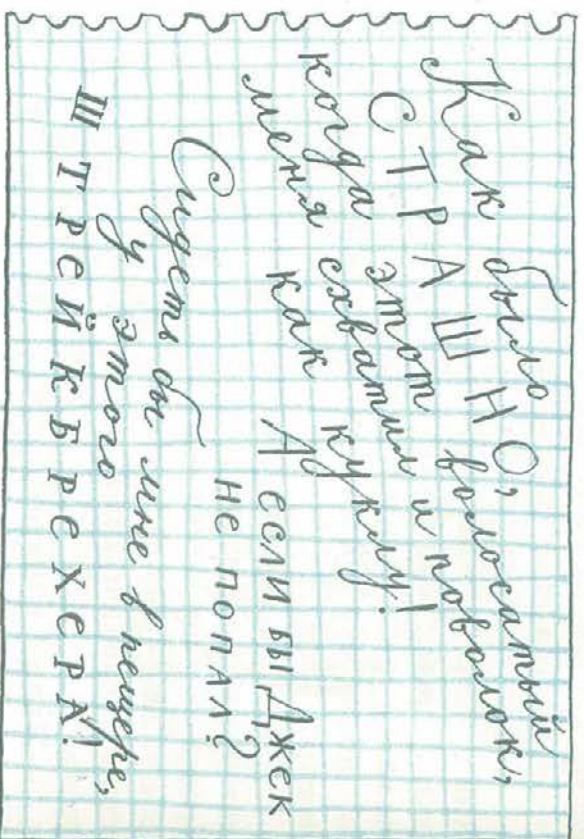 Как было
СТРАШНО,
когда этот волосатый
меня схватил и поволок,
как куклу!
А если бы Джек
не попал?
Сидеть бы мне в пещере,
у этого
ШТРЕЙКБРЕХЕРА!